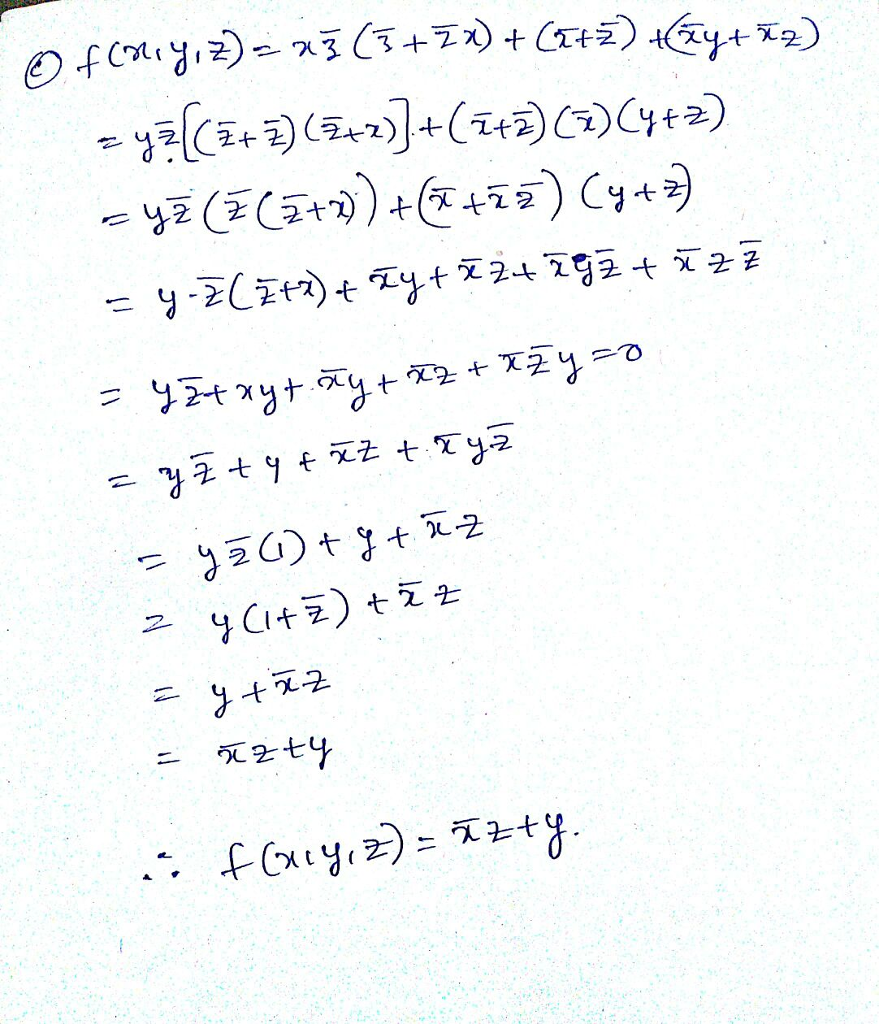 (c) f(x,y,z) = xz̄ (z̄ + z̄x) + (x̄+z̄) + (x̄y + x̄z)
= yz̄[(z̄+z̄)(z̄+x)] + (x̄+z̄)(x̄)(y+z)
= yz̄ (z̄(z̄+x)) + (x̄ + x̄z̄) (y+z)
= y·z̄(z̄+x) + x̄y + x̄z + x̄yz̄ + x̄zz̄
= yz̄ + xy + x̄y + x̄z + x̄z̄y = 0
= yz̄ + y + x̄z + x̄yz̄
= yz̄(1) + y + x̄z
= y(1+z̄) + x̄z
= y + x̄z
= x̄z+y
∴ f(x,y,z) = x̄z+y.